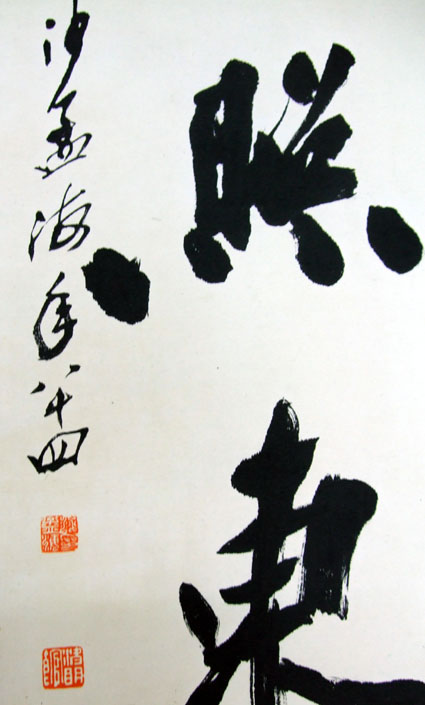 照東
沙孟海年八十四